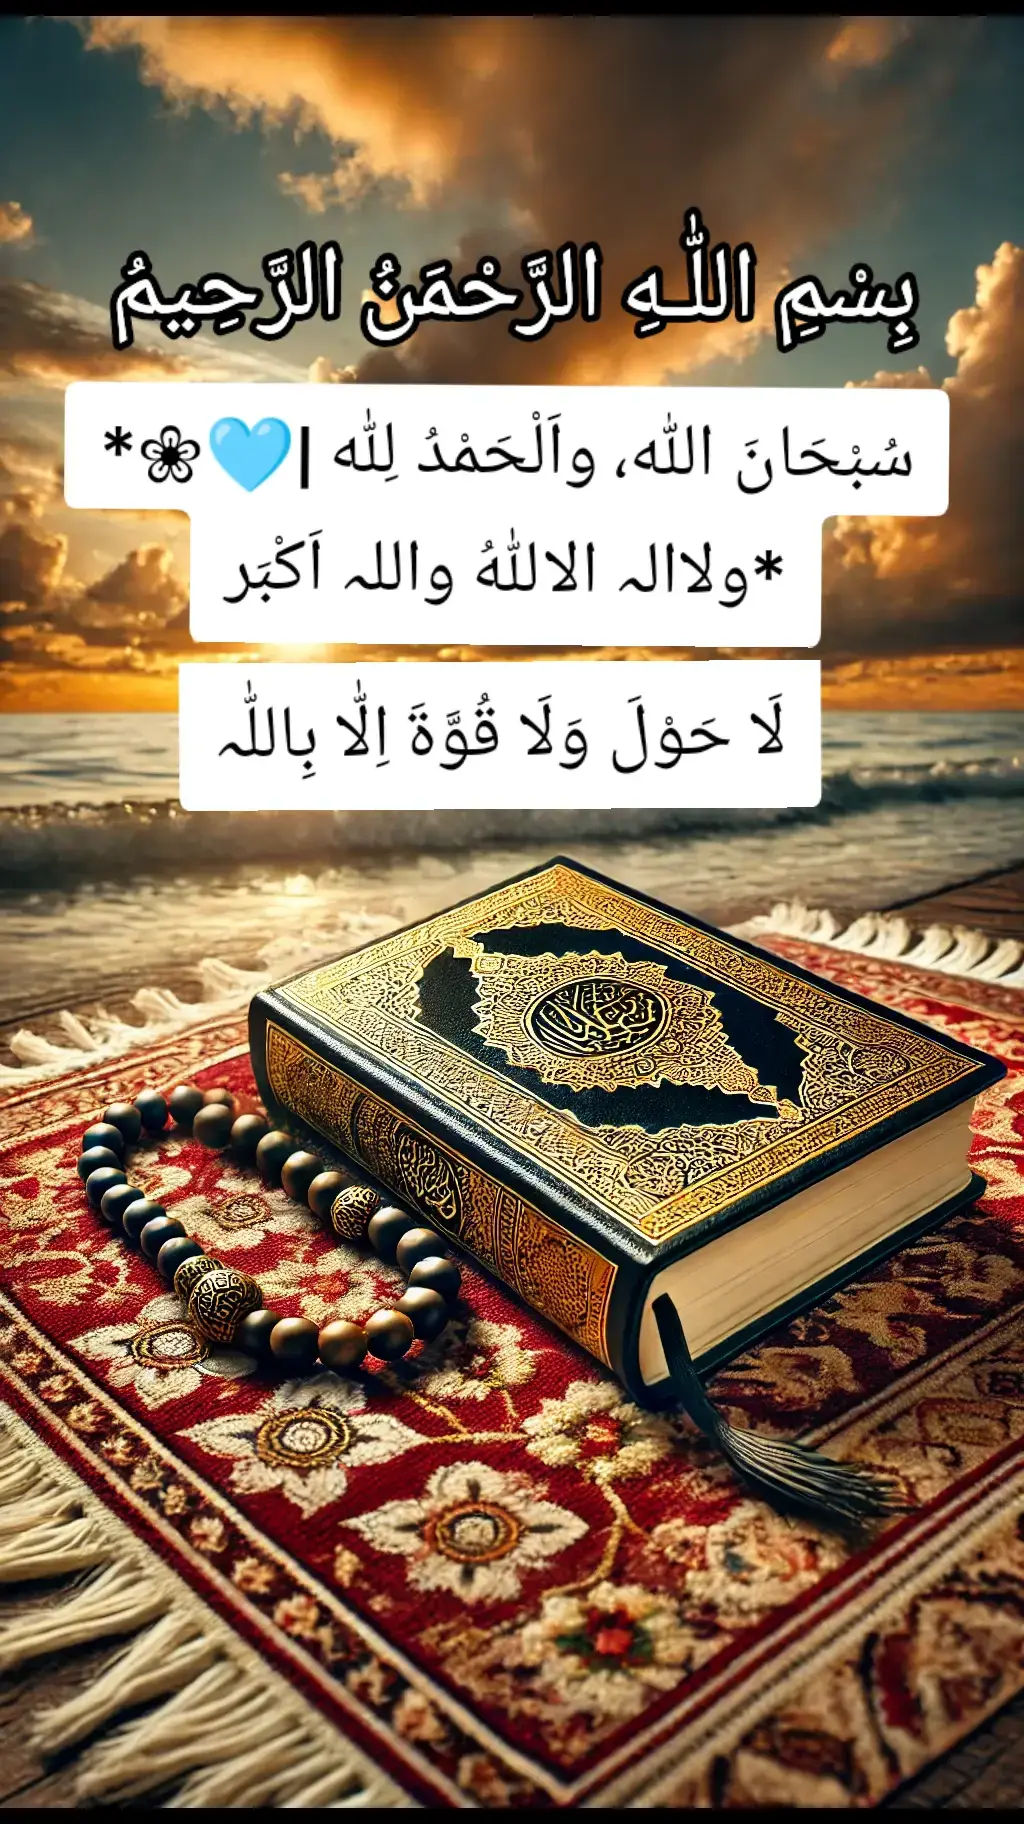 بِسْمِ اللّٰـهِ الرَّحْمَنُ الرَّحِيمُ
سُبْحَانَ اللّٰه، واَلْحَمْدُ لِلّٰه |🩵❀*
*ولاالہ الاللّٰهُ واللہ اَكْبَر
لَا حَوْلَ وَلَا قُوَّةَ اِلّٰا بِاللّٰہ